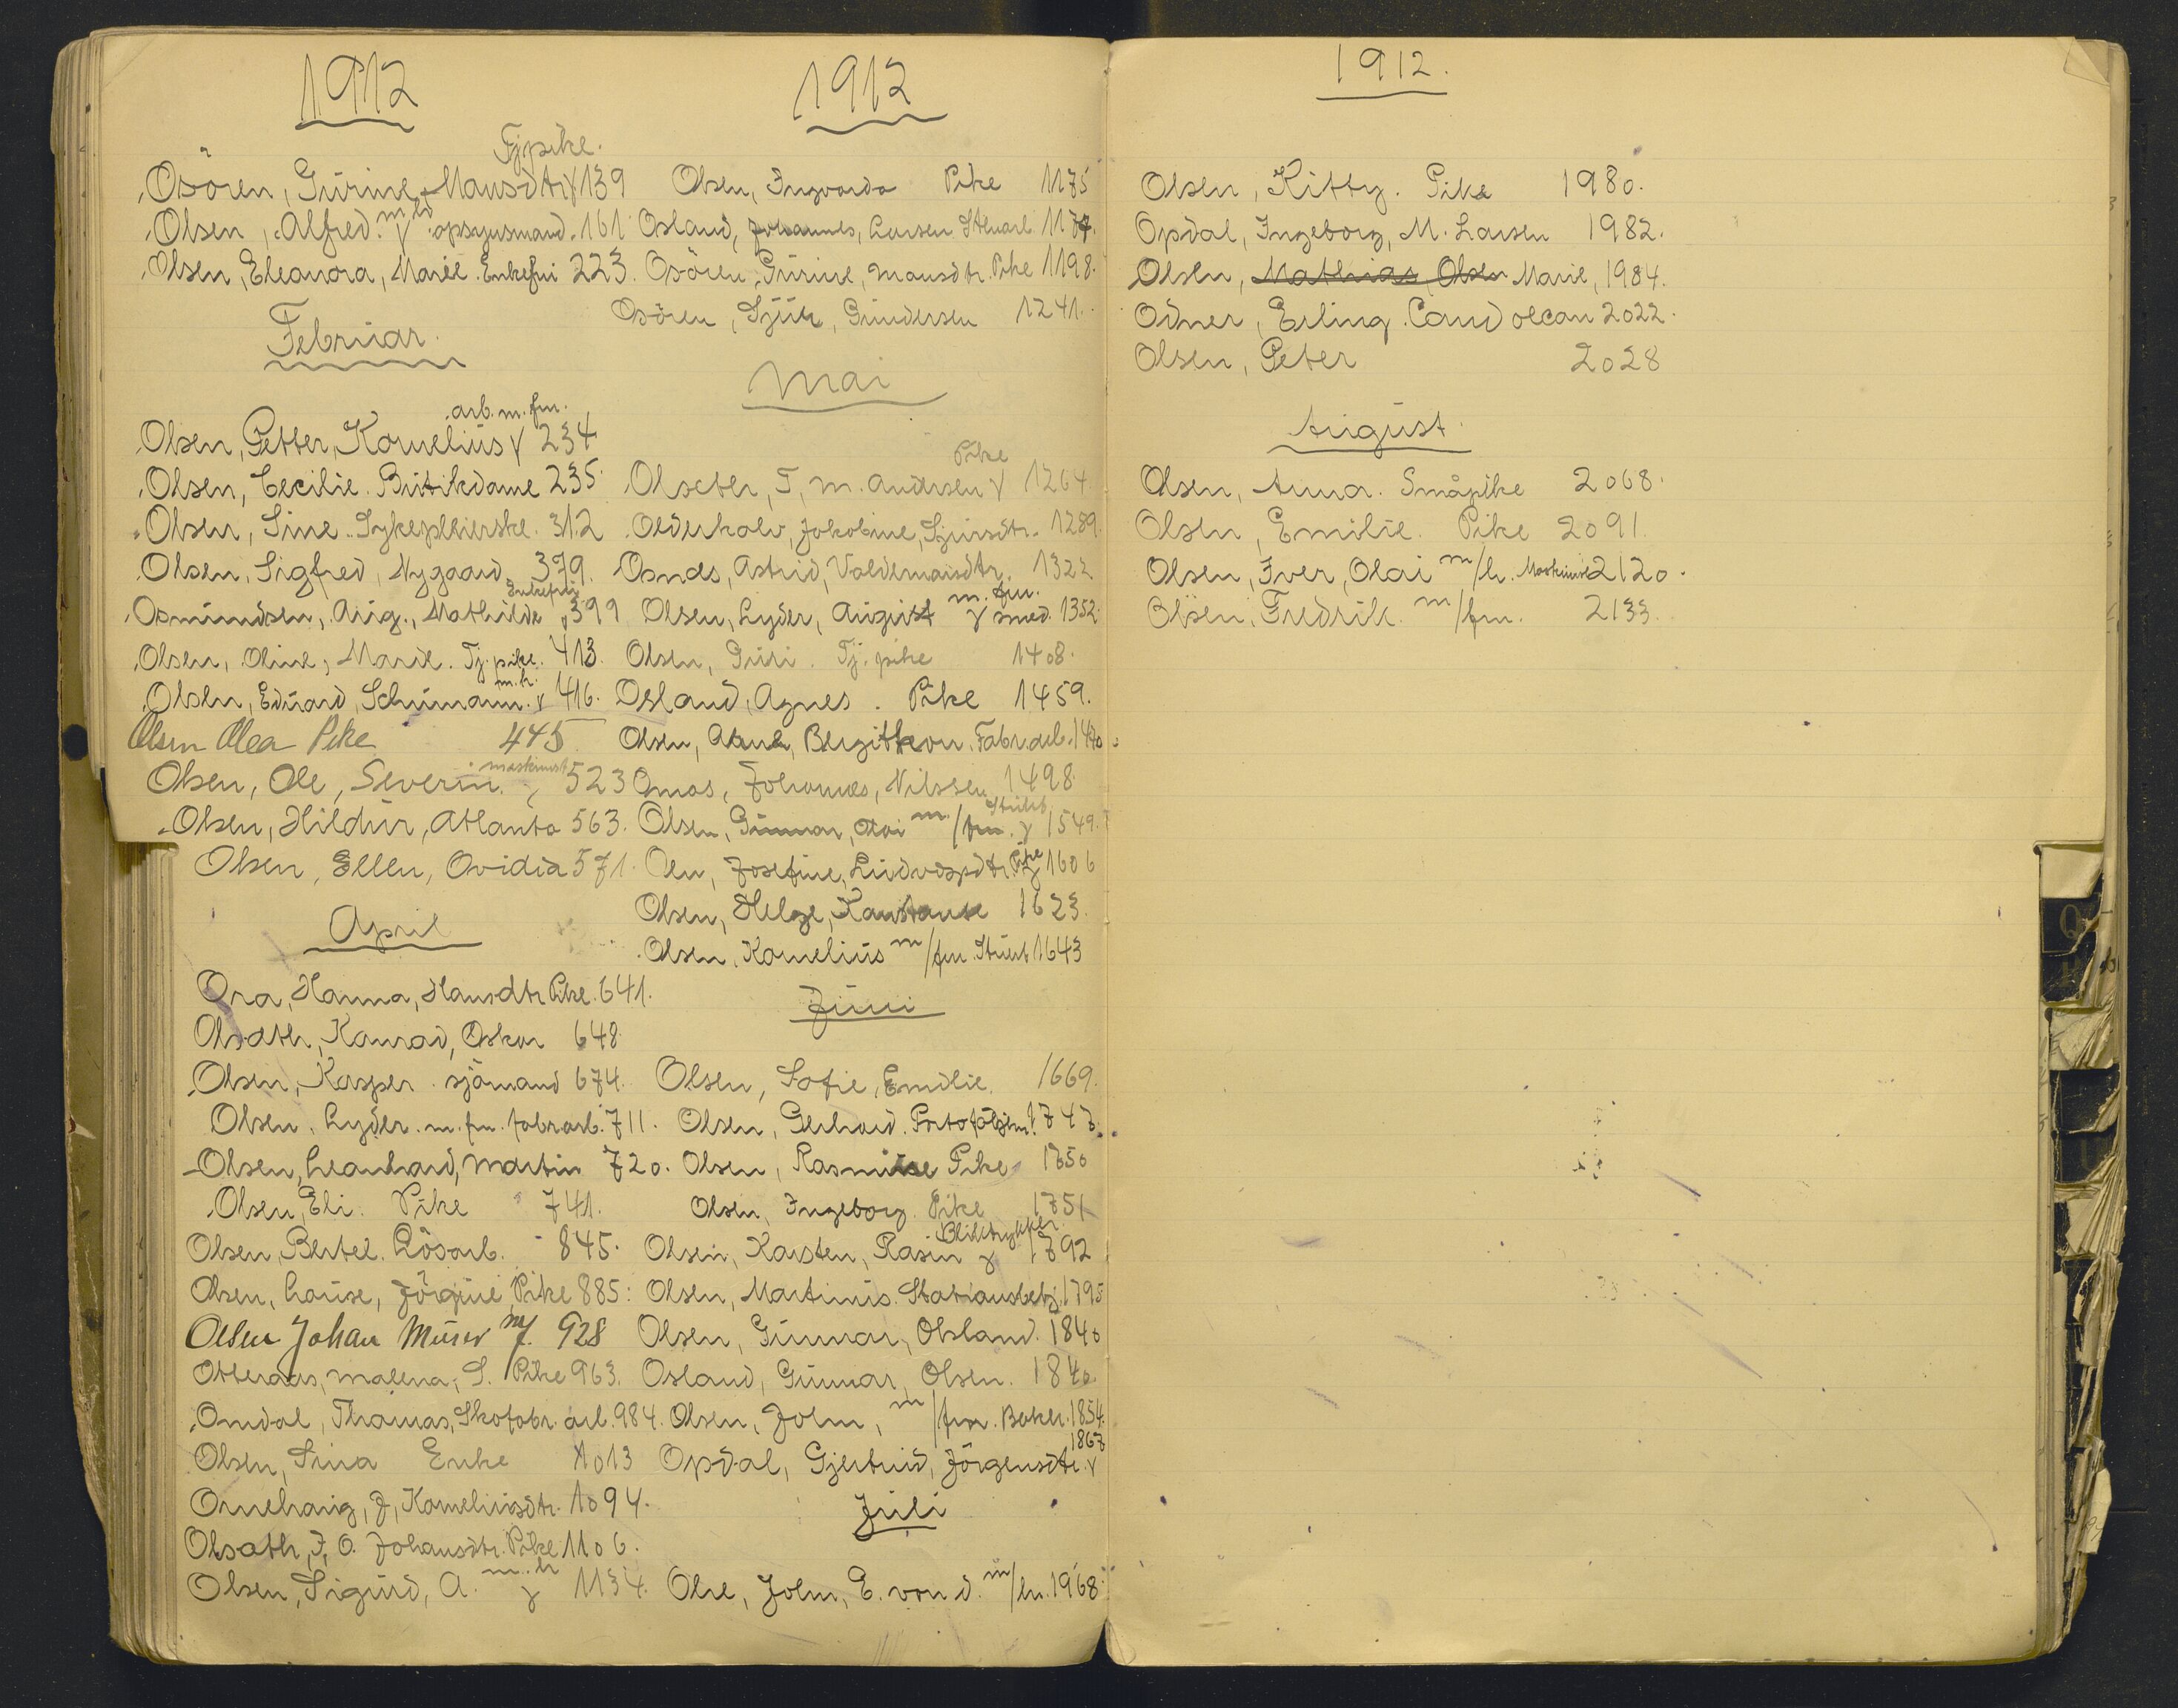 1912
Tjpike.
Osören, Gurine, Mausdtr 139
Olsen, Alfred. opsynsmand. 161
Olsen, Eleonora, Marie. Enkefru 223
Februar.
arb. m. fm.
Olsen, Petter, Kornelius 234
Olsen, Cecilie. Butikdame 235
Olsen, Sine. Sykepleierske. 312
Olsen, Sigfred, Nygaard 379.
Enkefru
Osmundsen, Aug., Mathilde 399
Olsen, Oline, Marie. Tj. pike. 413.
m. h.
Olsen, Eduard, Schumann. 416.
Olsen Olea Pike 445
maskinist
Olsen, Ole, Severin. 523
Olsen, Hildur, Atlanta 563.
Olsen, Ellen, Ovidia 571.
April
Ora, Hanna, Hansdtr Pike. 641.
Olsdtr, Konrad, Oskar 648.
Olsen, Kasper. sjömand 674.
Olsen, Lyder. m. fm. fabr.arb. 711.
Olsen, Leonhard, Martin 720.
Olsen, Eli. Pike 741.
Olsen, Bertel. Lösarb. 845.
Olsen, Louise, Jörgine, Pike 885.
Olsen Johan Muser m/f. 928
Otteraas, Malena, S. Pike 963.
Omdal, Thomas, Skofabr. arb. 984.
Olsen, Sina Enke 1013
Ornehaug, J, Korneliusdtr. 1094.
Olsath, J. O. Johansdtr. Pike 1106.
m. h
Olsen, Sigurd, A. 1134.
1912
Olsen, Ingvarda Pike 1175
Osland, Johannes, Larsen Stenarb. 1177.
Osören, Gurine, Mausdtr. Pike 1198.
Osören, Sjur, Gundersen 1241.
Mai
Pike
Olseter, T, M. Andersen 1264
Olderkalv, Jakobine, Sjursdtr. 1289.
Osnes, Astrid, Valdemarsdtr. 1322
m. fm.
Olsen, Lyder, August smed. 1352.
Olsen, Guri. Tj. pike 1408.
Osland, Agnes. Pike 1459.
Olsen, Anna, Bergitte Fabr.arb. 1470
Omas, Johannes, Nilssen 1498.
Olsen, Gunnar, Olai m/fm. 1549.
Pike
Oen, Josefine, Ludvigsdtr. 1606
Olsen, Helge, Konstanse 1623.
Olsen, Kornelius m/fm. Stuert 1643
Juni
Olsen, Sofie, Emilie. 1669.
Olsen, Gerhard. 1747.
Olsen, Rasmine Pike 1750
Olsen, Ingeborg. Pike 1751
Bliktrykker
Olsen, Karsten, Rasin 1792
Olsen, Martinus. Stationsbetj. 1795
Olsen, Gunnar, Osland. 1840
Osland, Gunnar, Olsen. 1840.
Olsen, John, m/fm. Baker. 1854.
1867
Opdal, Gjertrud, Jörgensdtr.
Juli
Olse, John, E. von d. m/h. 1968.
1912.
Olsen, Kitty. Pike 1980.
Opdal, Ingeborg, M. Larsen 1982.
Olsen, Mathias, Olsen Marie, 1984.
Odner, Erling. Cand oecon 2022.
Olsen, Peter 2028
August.
Olsen, Anna. Småpike 2068.
Olsen, Emilie. Pike 2091.
Olsen, Iver, Olai m/h. Maskinist 2120.
Olsen, Fredrik. m/fm. 2133.